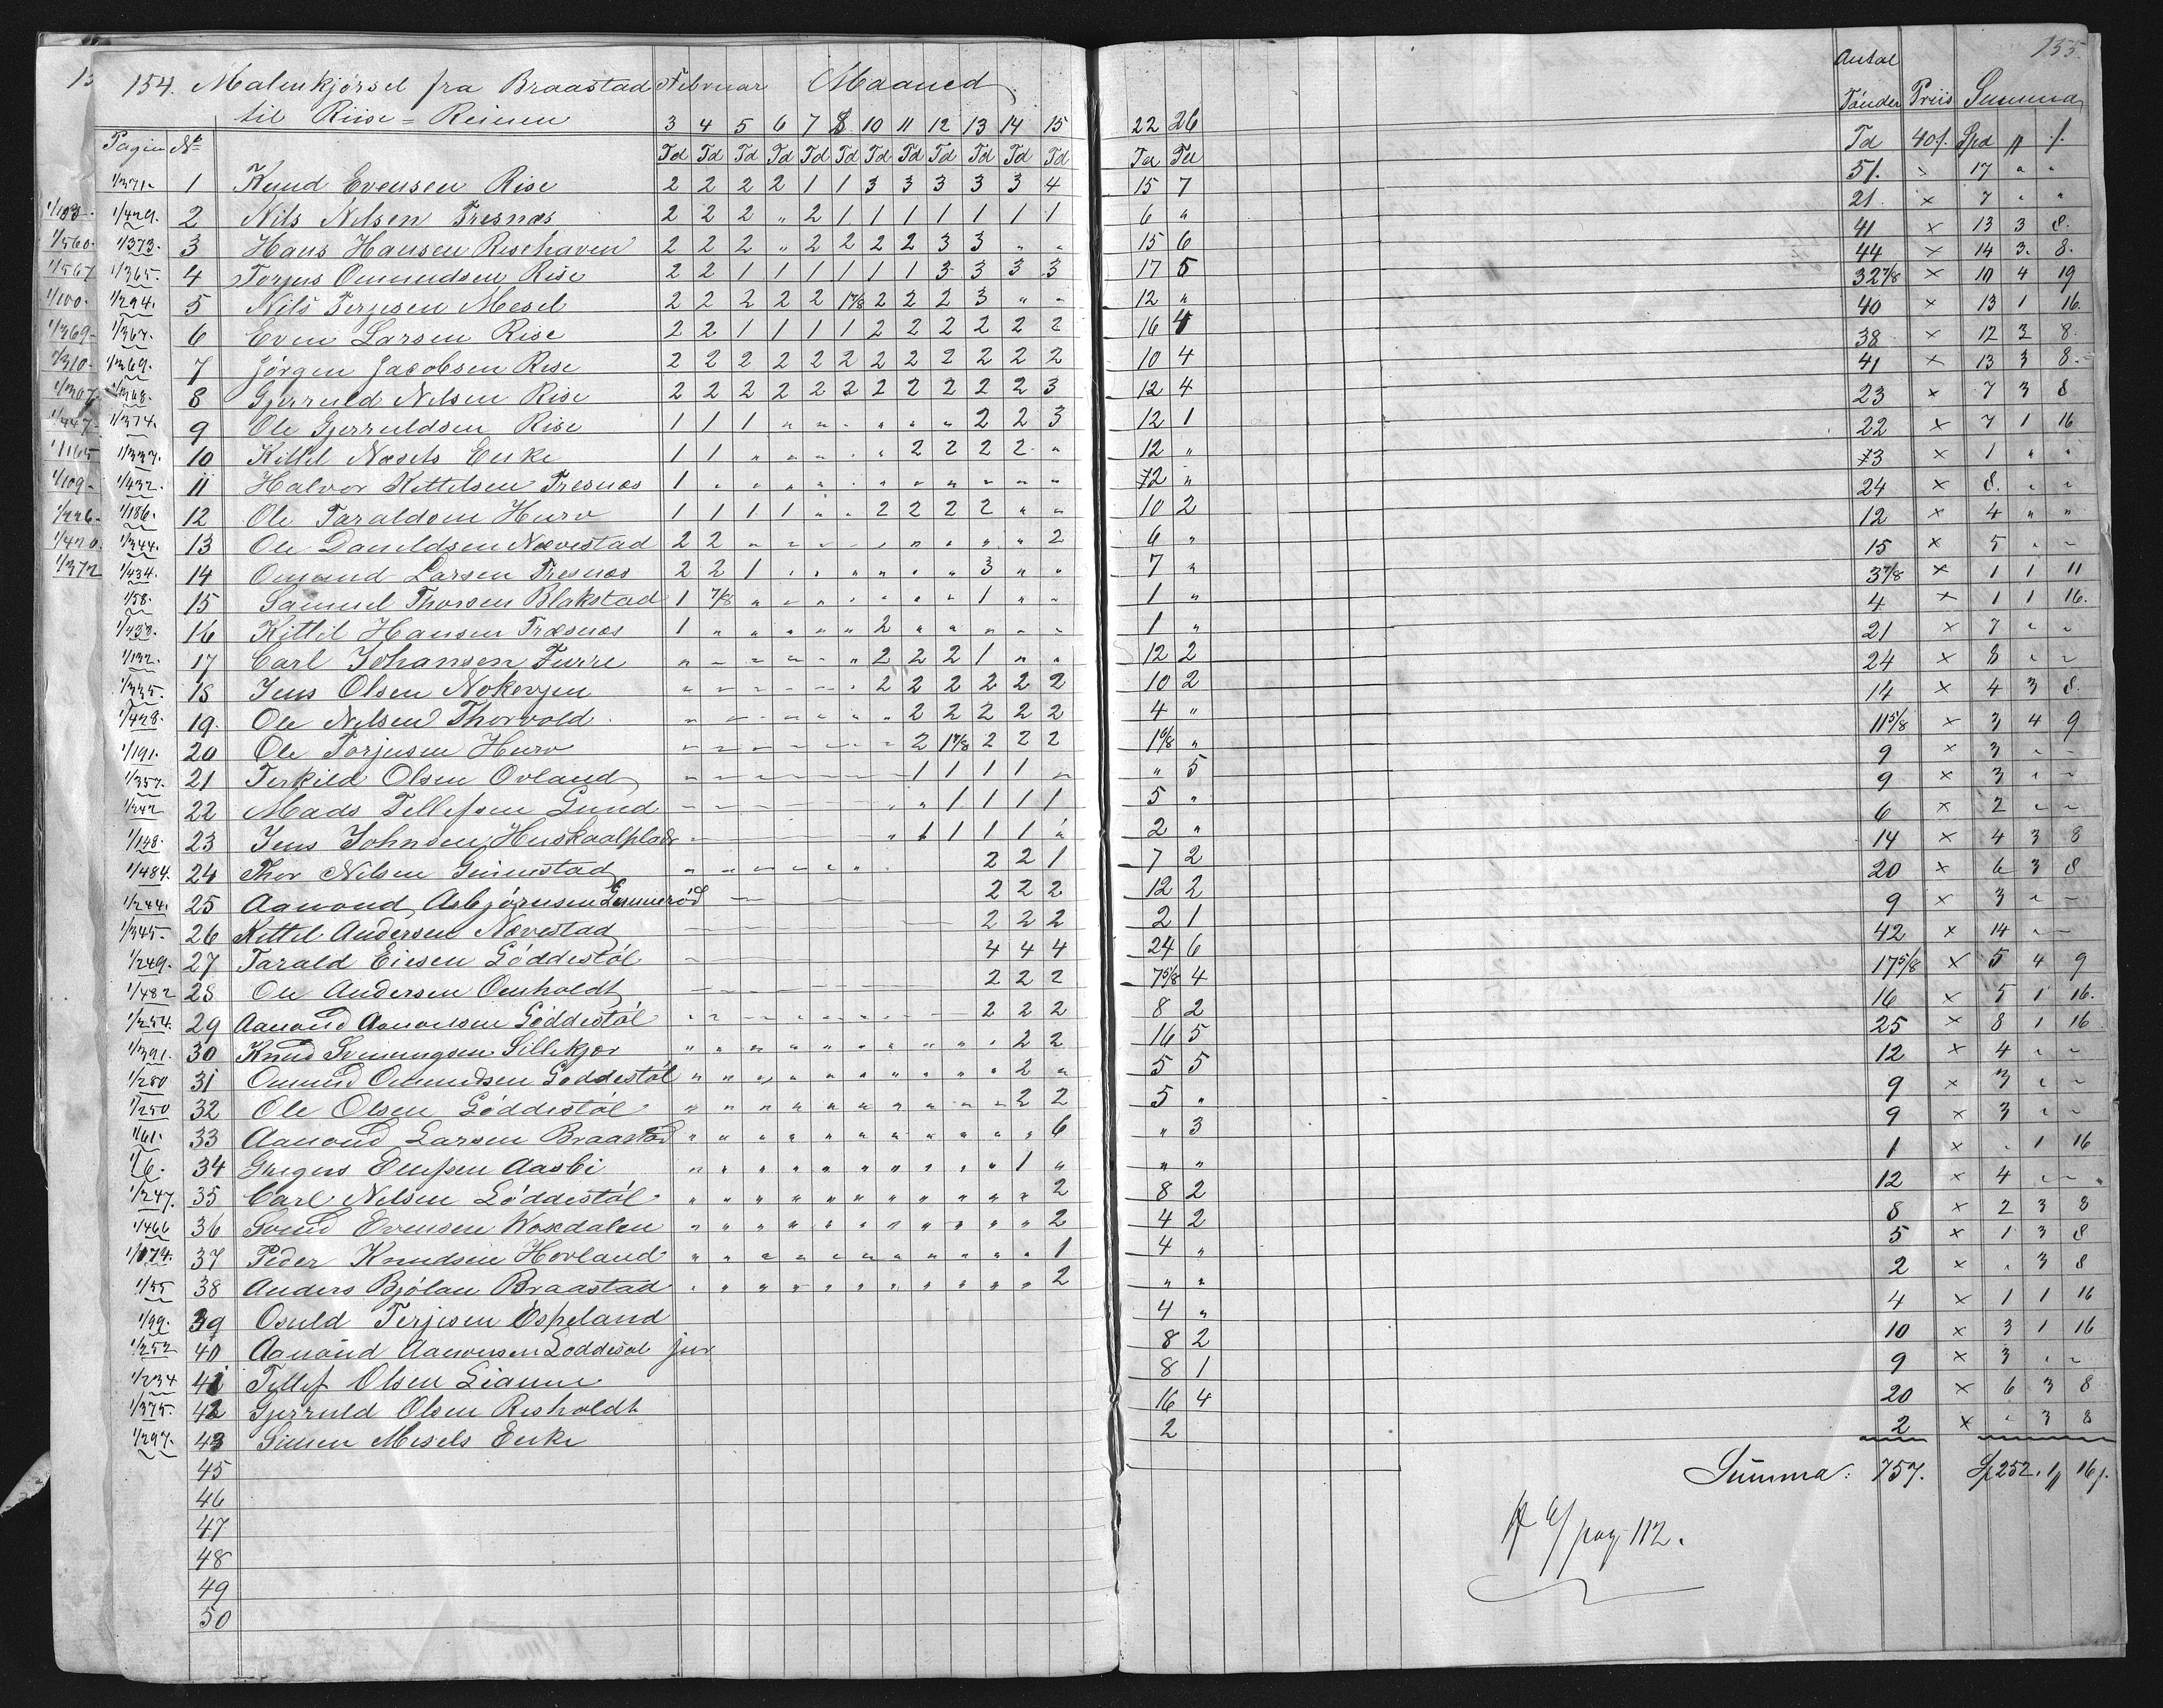 154. Malmkjörsel fra Braastad Februar Maaned 155.
til Riise-Reimen
Antal
Tönder Priis Summa
3 4 5 6 7 8 10 11 12 13 14 15 22 26
Pagin No Td Td Td Td Td Td Td Td Td Td Td Td Td Td Td 40/. Spd
1/371. 1 Knud Evensen Rise 2 2 2 2 1 1 3 3 3 3 3 4 15 7 51. 17 " "
1/429. 2 Nils Nilsen Tresnæs 2 2 2 " 2 1 1 1 1 1 1 1 6 " 21. × 7 " "
1/373. 3 Hans Hansen Risehaven 2 2 2 " 2 2 2 2 3 3 " " 15 6 41 × 13 3 8.
1/365. 4 Torjus Omundsen Rise 2 2 1 1 1 1 1 1 3 3 3 3 17 5 44 × 14 3. 8.
1/294. 5 Nils Terjesen Mesel 2 2 2 2 2 1 7/8 2 2 2 3 " " 12 " 32 7/8 × 10 4 19
1/367. 6 Even Larsen Rise 2 2 1 1 1 1 2 2 2 2 2 2 16 4 40 × 13 1 16.
1/369. 7 Jörgen Jacobsen Rise 2 2 2 2 2 2 2 2 2 2 2 2 10 4 38 × 12 3 8.
1/368. 8 Gjerruld Nilsen Rise 2 2 2 2 2 2 2 2 2 2 2 3 12 4 41 × 13 3 8.
1/374. 9 Ole Gjerruldsen Rise 1 1 1 " " " " " " 2 2 3 12 1 23 × 7 3 8
1/337. 10 Kittel Næsets Enke 1 1 " " " " " 2 2 2 2 " 12 " 22 × 7 1 16
1/432. 11 Halvor Kittelsen Tresnæs 1 " " " " " " " " " " " 2 " 3 × 1 " "
1/186. 12 Ole Taraldsen Hurv 1 1 1 1 " " 2 2 2 2 " " 10 2 24 × 8. " "
1/344. 13 Ole Danieldsen Nævestad 2 2 " " " " " " " " " 2 6 " 12 × 4 " "
1/434. 14 Omund Larsen Tresnæs 2 2 1 " " " " " " 3 " " 7 " 15 × 5 " "
1/58. 15 Samuel Thorsen Blakstad 1 7/8 " " " " " " " 1 " " 1 " 3 7/8 × 1 1 11
1/433. 16 Kittil Hansen Træsnæs 1 " " " " " 2 " " " " " 1 " 4 × 1 1 16.
1/132. 17 Carl Johansen Furre " " " " " " 2 2 2 1 " " 12 2 21 × 7 " "
1/335. 18 Jens Olsen Nokevjen " " " " " " 2 2 2 2 2 2 10 2 24 × 8 " "
1/428. 19. Ole Nilsen Thorvold " " " " " " " 2 2 2 2 2 4 " 14 × 4 3 8.
1/191. 20 Ole Torjusen Hurv " " " " " " " 2 1 7/8 2 2 2 1 6/8 " 11 5/8 × 3 4 9
1/357. 21 Terkild Olsen Ovland " " " " " " " 1 1 1 1 " " 5 9 × 3 " "
1/242 22 Mads Tellefsen Lund " " " " " " " " 1 1 1 1 5 " 9 × 3 " "
1/148. 23 Jens Johnsen Huskaalplads " " " " " " " 1 1 1 1 " 2 " 6 × 2 " "
1/484. 24 Thor Nilsen Simestad " " " " " " " 2 2 1 7 2 14 × 4 3 8
1/244. 25 Aanond Asbjörnsen Lunneröd 2 2 2 12 2 20 × 6 3 8
1/345. 26 Kittel Andersen Nævestad 2 2 2 2 1 9 × 3 " "
1/249. 27 Tarald Eiesen Löddestöl 4 4 4 24 6 42 × 14 " "
1/482 28 Ole Andersen Omholdt 2 2 2 7 5/8 4 17 5/8 × 5 4 9
1/254. 29 Aanond Aanonsen Löddestöl 2 2 2 8 2 16 × 5 1 16.
1/391. 30 Knud Semmingsen Sillekjær " " " " " " " " " " 2 2 16 5 25 × 8 1 16
1/280 31 Omund Omundsen Loddestöl " " " " " " " " " " 2 " 5 5 12 × 4 " "
1/250 32 Ole Olsen Löddestöl " " " " " " " " " " 2 2 5 " 9 × 3 " "
1/61. 33 Aanond Larsen Braastad " " " " " " " " " " " 6 " 3 9 × 3 " "
1/6. 34 Gregers Aasbi " " " " " " " " " " 1 " " " 1 × " 1 16
1/247. 35 Carl Nilsen Löddestöl " " " " " " " " " " " 2 8 2 12 × 4 " "
1/466 36 Svend Evensen Woxdalen " " " " " " " " " " " 2 4 2 8 × 2 3 8
1/174. 37 Peder Knudsen Hovland " " " " " " " " " " " 1 4 " 5 × 1 3 8
1/55 38 Anders Bjölan Braastad " " " " " " " " " " " 2 " " 2 × " 3 8
1/99. 39 Osuld Terjesen Espeland 4 " 4 × 1 1 16
1/252 40 Aanond Aanonsen Loddesöl jur 8 2 10 × 3 1 16
1/234 41 Tellef Olsen Lianne 8 1 9 × 3 " "
1/375. 42 Gjerruld Olsen Risholdt 16 4 20 × 6 3 8
1/297. 43 Simen Mesels Enke 2 2 × " 3 8
45 Summa: 757. Sp 252. 1 16/.
46
47 pag 112.
48
49
50
1/103.
1/560.
1/567
1/100.
1/369
1/310.
1/367
1/447
1/165
1/109
1/226
1/420.
1/372